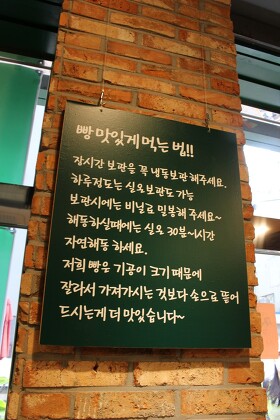 빵 맛있게 먹는 법!!
장시간 보관은 꼭 냉동보관 해주세요.
하루정도는 실온보관도 가능
보관시에는 비닐로 밀봉해 주세요~
해동하실때에는 실온 30분~1시간
자연해동 하세요.
저희 빵은 기공이 크기 때문에
잘라서 가져가시는 것보다 손으로 뜯어
드시는게 더 맛있습니다~